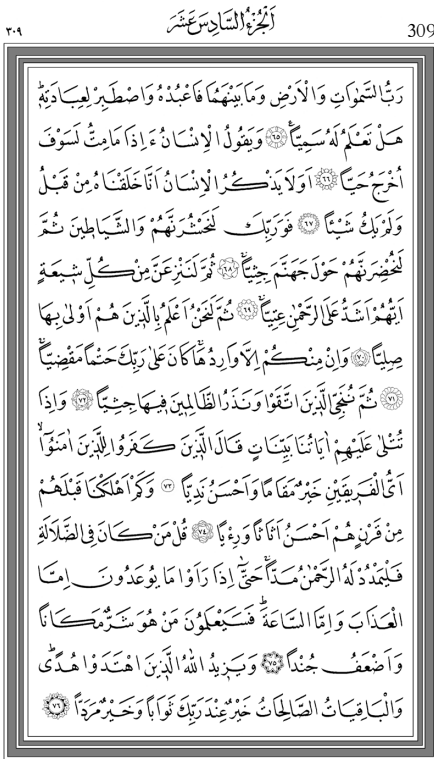 ٣٠٩ اَلْجُزْءُ السَّادِسَ عَشَرَ 309
رَبُّ السَّمٰوَاتِ وَالْاَرْضِ وَمَا بَيْنَهُمَا فَاعْبُدْهُ وَاصْطَبِرْ لِعِبَادَتِهٖۜ
هَلْ تَعْلَمُ لَهُ سَمِيًّاۜ ﴿٦٥﴾ وَيَقُولُ الْاِنْسَانُ ءَاِذَا مَا مِتُّ لَسَوْفَ
اُخْرَجُ حَيًّا ﴿٦٦﴾ اَوَلَا يَذْكُرُ الْاِنْسَانُ اَنَّا خَلَقْنَاهُ مِنْ قَبْلُ
وَلَمْ يَكُ شَيْـًٔا ﴿٦٧﴾ فَوَرَبِّكَ لَنَحْشُرَنَّهُمْ وَالشَّيَاطٖينَ ثُمَّ
لَنُحْضِرَنَّهُمْ حَوْلَ جَهَنَّمَ جِثِيًّاۚ ﴿٦٨﴾ ثُمَّ لَنَنْزِعَنَّ مِنْ كُلِّ شٖيعَةٍ
اَيُّهُمْ اَشَدُّ عَلَى الرَّحْمٰنِ عِتِيًّاۚ ﴿٦٩﴾ ثُمَّ لَنَحْنُ اَعْلَمُ بِالَّذٖينَ هُمْ اَوْلٰى بِهَا
صِلِيًّا ﴿٧٠﴾ وَاِنْ مِنْكُمْ اِلَّا وَارِدُهَاۚ كَانَ عَلٰى رَبِّكَ حَتْمًا مَقْضِيًّاۚ
﴿٧١﴾ ثُمَّ نُنَجِّي الَّذٖينَ اتَّقَوْا وَنَذَرُ الظَّالِمٖينَ فٖيهَا جِثِيًّا ﴿٧٢﴾ وَاِذَا
تُتْلٰى عَلَيْهِمْ اٰيَاتُنَا بَيِّنَاتٍ قَالَ الَّذٖينَ كَفَرُوا لِلَّذٖينَ اٰمَنُواۙ
اَيُّ الْفَرٖيقَيْنِ خَيْرٌ مَقَامًا وَاَحْسَنُ نَدِيًّا ﴿٧٣﴾ وَكَمْ اَهْلَكْنَا قَبْلَهُمْ
مِنْ قَرْنٍ هُمْ اَحْسَنُ اَثَاثًا وَرِءْيًا ﴿٧٤﴾ قُلْ مَنْ كَانَ فِي الضَّلَالَةِ
فَلْيَمْدُدْ لَهُ الرَّحْمٰنُ مَدًّاۚ حَتّٰٓى اِذَا رَاَوْا مَا يُوعَدُونَ اِمَّا
الْعَذَابَ وَاِمَّا السَّاعَةَۜ فَسَيَعْلَمُونَ مَنْ هُوَ شَرٌّ مَكَانًا
وَاَضْعَفُ جُنْدًا ﴿٧٥﴾ وَيَزٖيدُ اللّٰهُ الَّذٖينَ اهْتَدَوْا هُدًىۜ
وَالْبَاقِيَاتُ الصَّالِحَاتُ خَيْرٌ عِنْدَ رَبِّكَ ثَوَابًا وَخَيْرٌ مَرَدًّا ﴿٧٦﴾